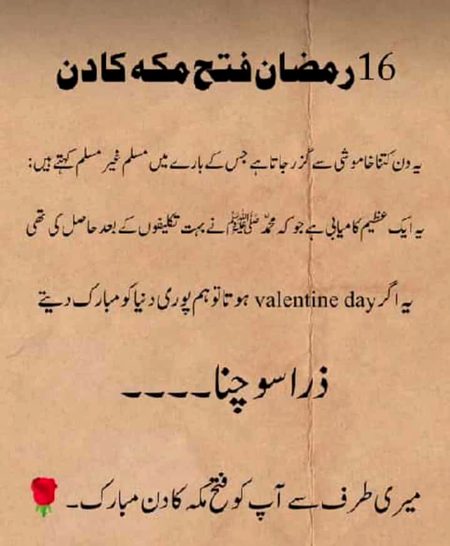 16رمضان فتح مکہ کا دن
یہ دن کتنا خاموشی سے گزر جاتا ہے جس کے بارے میں مسلم غیر مسلم کہتے ہیں:
یہ ایک عظیم کامیابی ہے جو کہ محمد ﷺ نے بہت تکلیفوں کے بعد حاصل کی تھی
یہ اگر valentine day ہوتا تو ہم پوری دنیا کو مبارک دیتے
ذرا سوچنا۔۔۔۔
میری طرف سے آپ کو فتح مکہ کا دن مبارک۔ 🌹